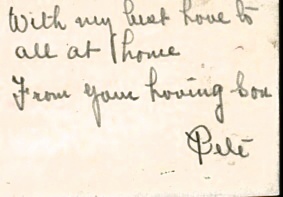 With my best love to
all at home
From your loving Son
Pete